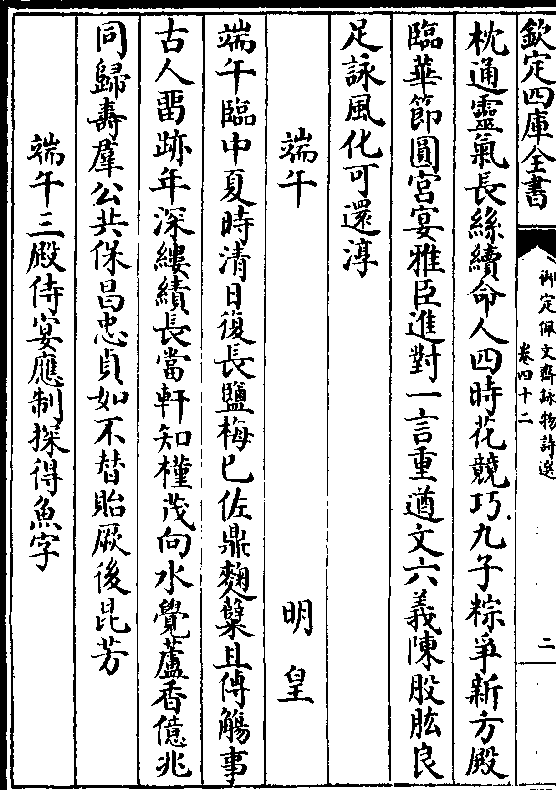 欽定四庫全書
御定佩文齋詠物詩選
卷四十二
二
枕通靈氣長絲續命人四時花競巧九子粽爭新方殿
臨華節圓宮宴雅臣進對一言重遒文六義陳股肱良
足詠風化可還淳
端午 明皇
端午臨中夏時清日復長鹽梅已佐鼎麴糵且傳觴事
古人畱跡年深縷績長當軒知槿茂向水覺蘆香億兆
同歸壽羣公共保昌忠貞如不替貽厥後昆芳
端午三殿侍宴應制探得魚字